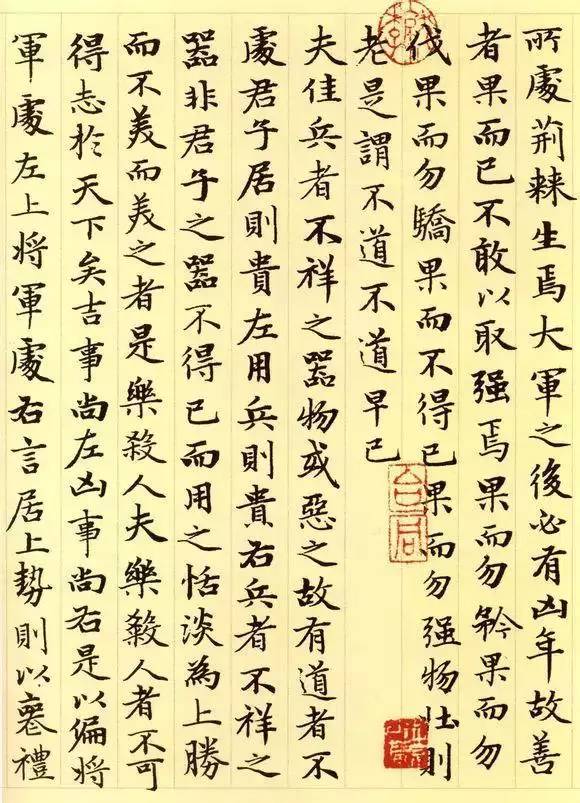 所處荆棘生焉大軍之後必有凶年故善
者果而已不敢以取强焉果而勿矜果而勿
伐果而勿驕果而不得已果而勿强物壯則
老是謂不道不道早已
夫佳兵者不祥之器物或惡之故有道者不
處君子居則貴左用兵則貴右兵者不祥之
器非君子之器不得已而用之恬淡為上勝
而不美而美之者是樂殺人夫樂殺人者不可
得志於天下矣吉事尚左凶事尚右是以偏將
軍處左上將軍處右言居上勢則以喪禮